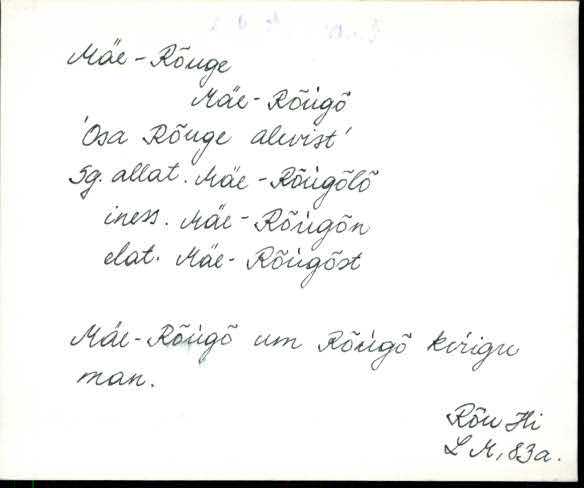 Mäe-Rõuge
Mäe-Rõùgõ
'Osa Rõuge alevist'
Sg. allat. Mäe-Rõùgõlõ
iness. Mäe-Rõùgõn
elat. Mäe-Rõùgõst
Mäe-Rõùgõ um Rõùgõ kiŕigu
man.
Rõu Hi
L M, 83a.